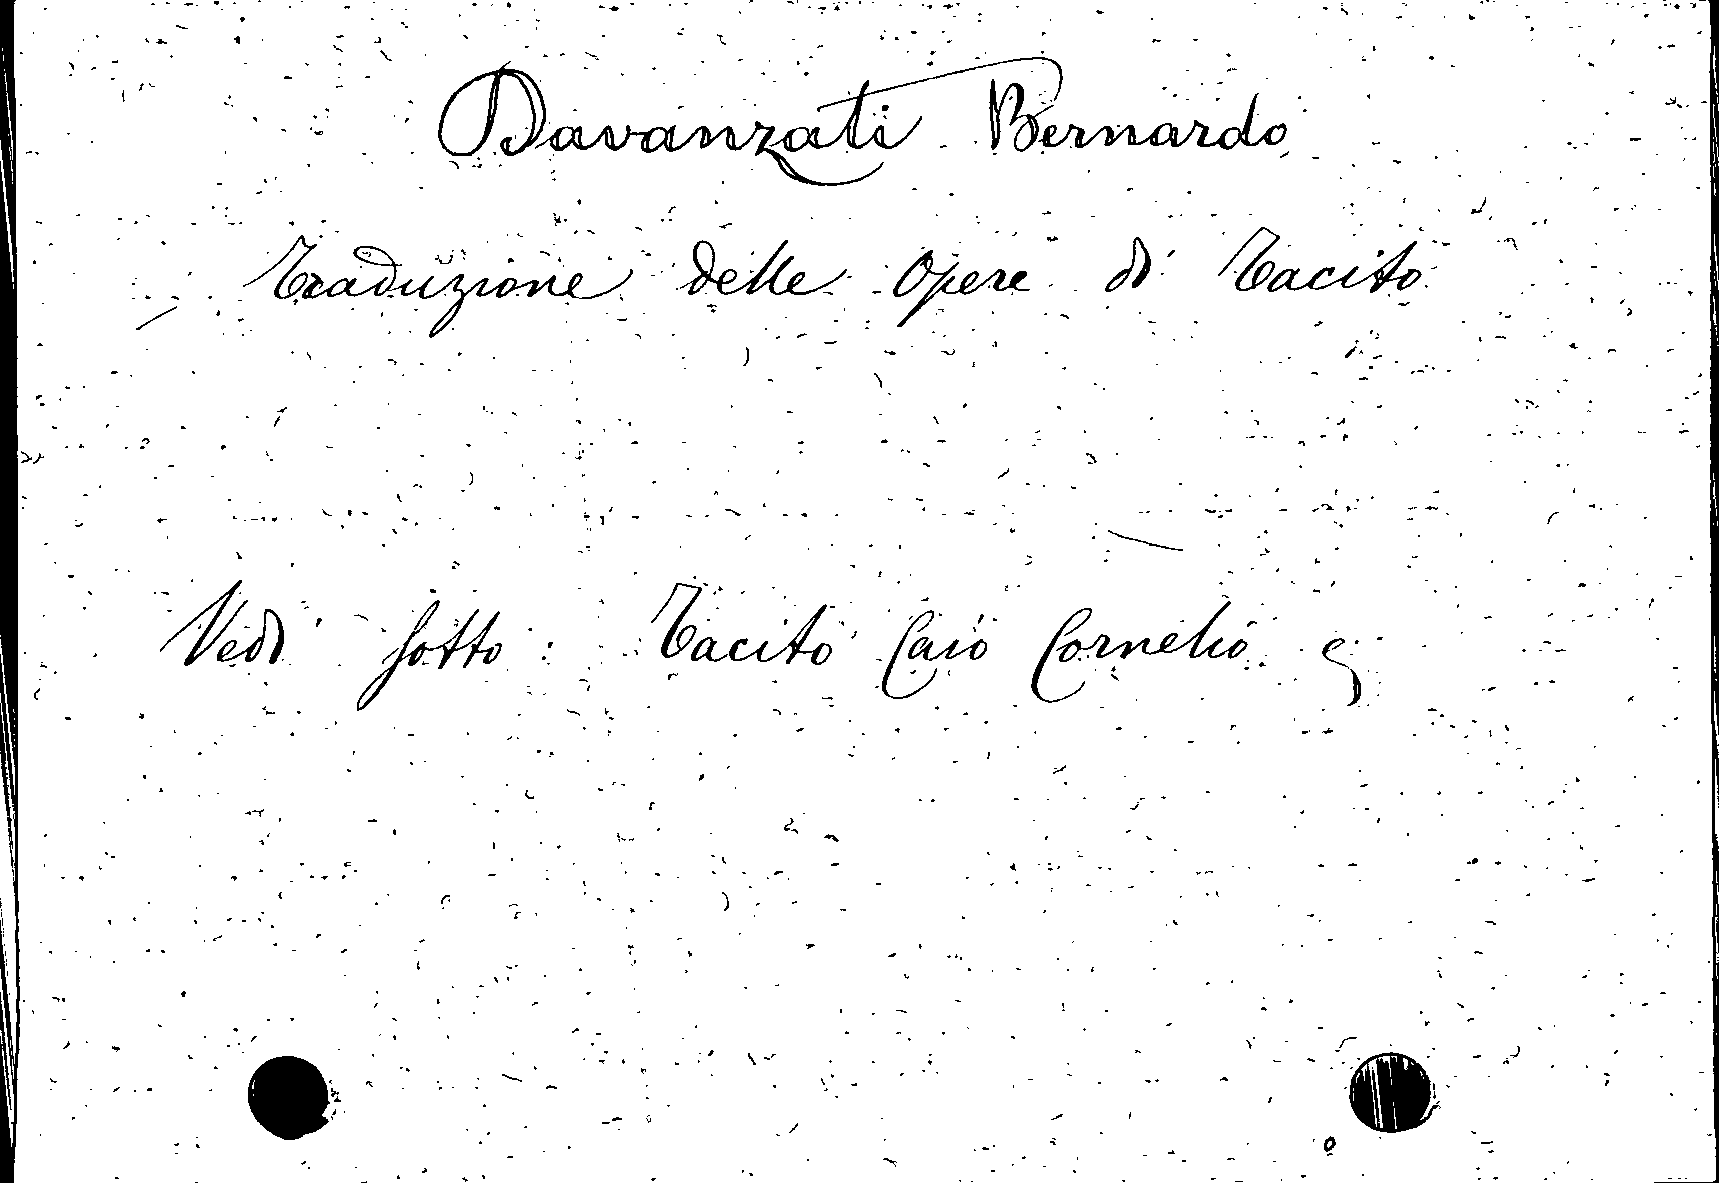 Davanzati Bernardo
Traduzione delle Opere di Tacito
Vedi sotto: Tacito Caio Cornelio